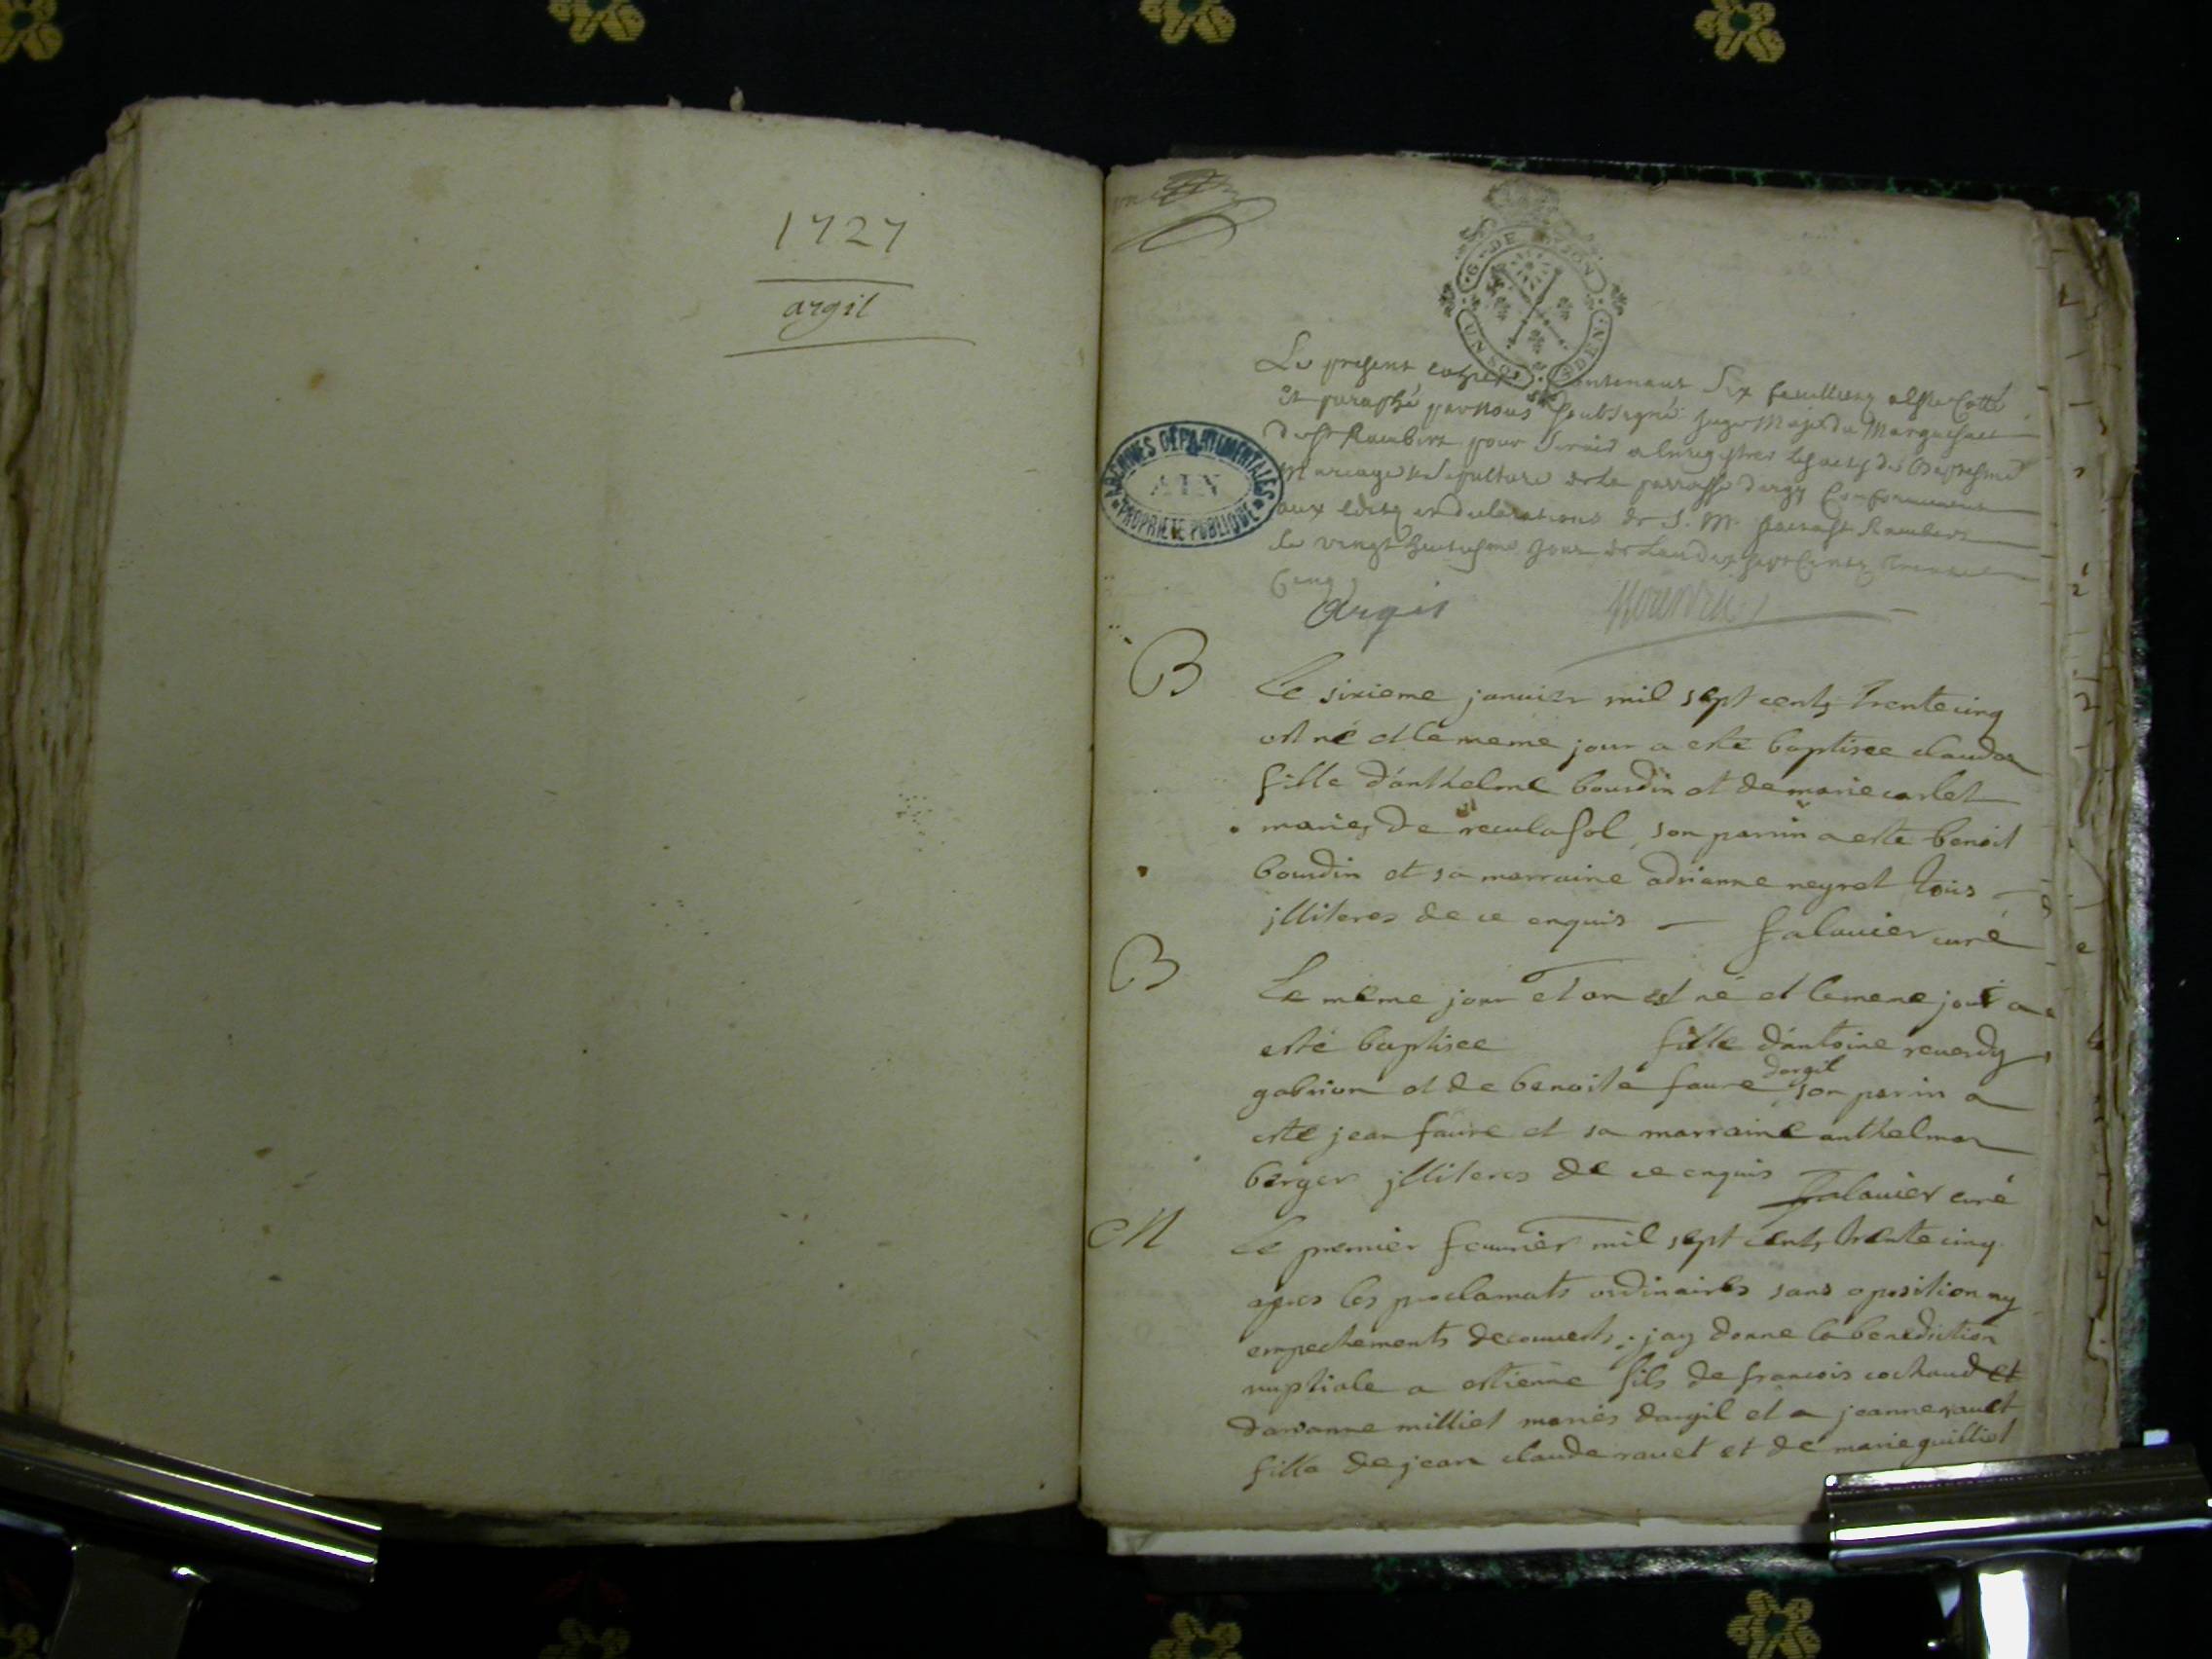 1727
argil
G. DE DIJON
UN SOL DEN
Le present cahier contenant six feuilletz a esté Cotté
Et paraphé par nous soubsigné juge Maje du Marquisat
de st Rambert pour servir a Enregistrer les actes de Baptesme
Mariage et sepulture de la parroisse dargy Conformement
aux edits et declarations de S. M. fait a st Rambert
le vingt huitiesme jour de Lan dix sept Centz trente
Cinq
Argis
ARCHIVES DÉPARTEMENTALES
AIN
PROPRIÉTÉ PUBLIQUE
B
Le sixieme januier mil sept cents trente cinq
est né et le meme jour a esté baptisee claudaz
fille d'anthelme bourdin et de marie carlet
maries de reculafol, son parrin a esté benoit
bourdin et sa marraine adrienne neyret tous
jlliteres de ce enquis - falauier curé
B
Le meme jour et an est né et le mene jour a
esté baptisee fille d'antoine reuerdy
gabrion et de benoite faure dargil son parrin a
esté jean faure et sa marraine anthelmaz
berger jlliteres de ce enquis falauier curé
M
Le premier feurier mil sept cents trente cinq
apres les proclamats ordinaires sans oposition ny
empechements decouuerts, jay donne la benediction
nuptiale a estienne fils de francois cochaud et
darianne milliet mariés dargil et a jeanne rauet
fille de jean claude rauet et de marie guilliet